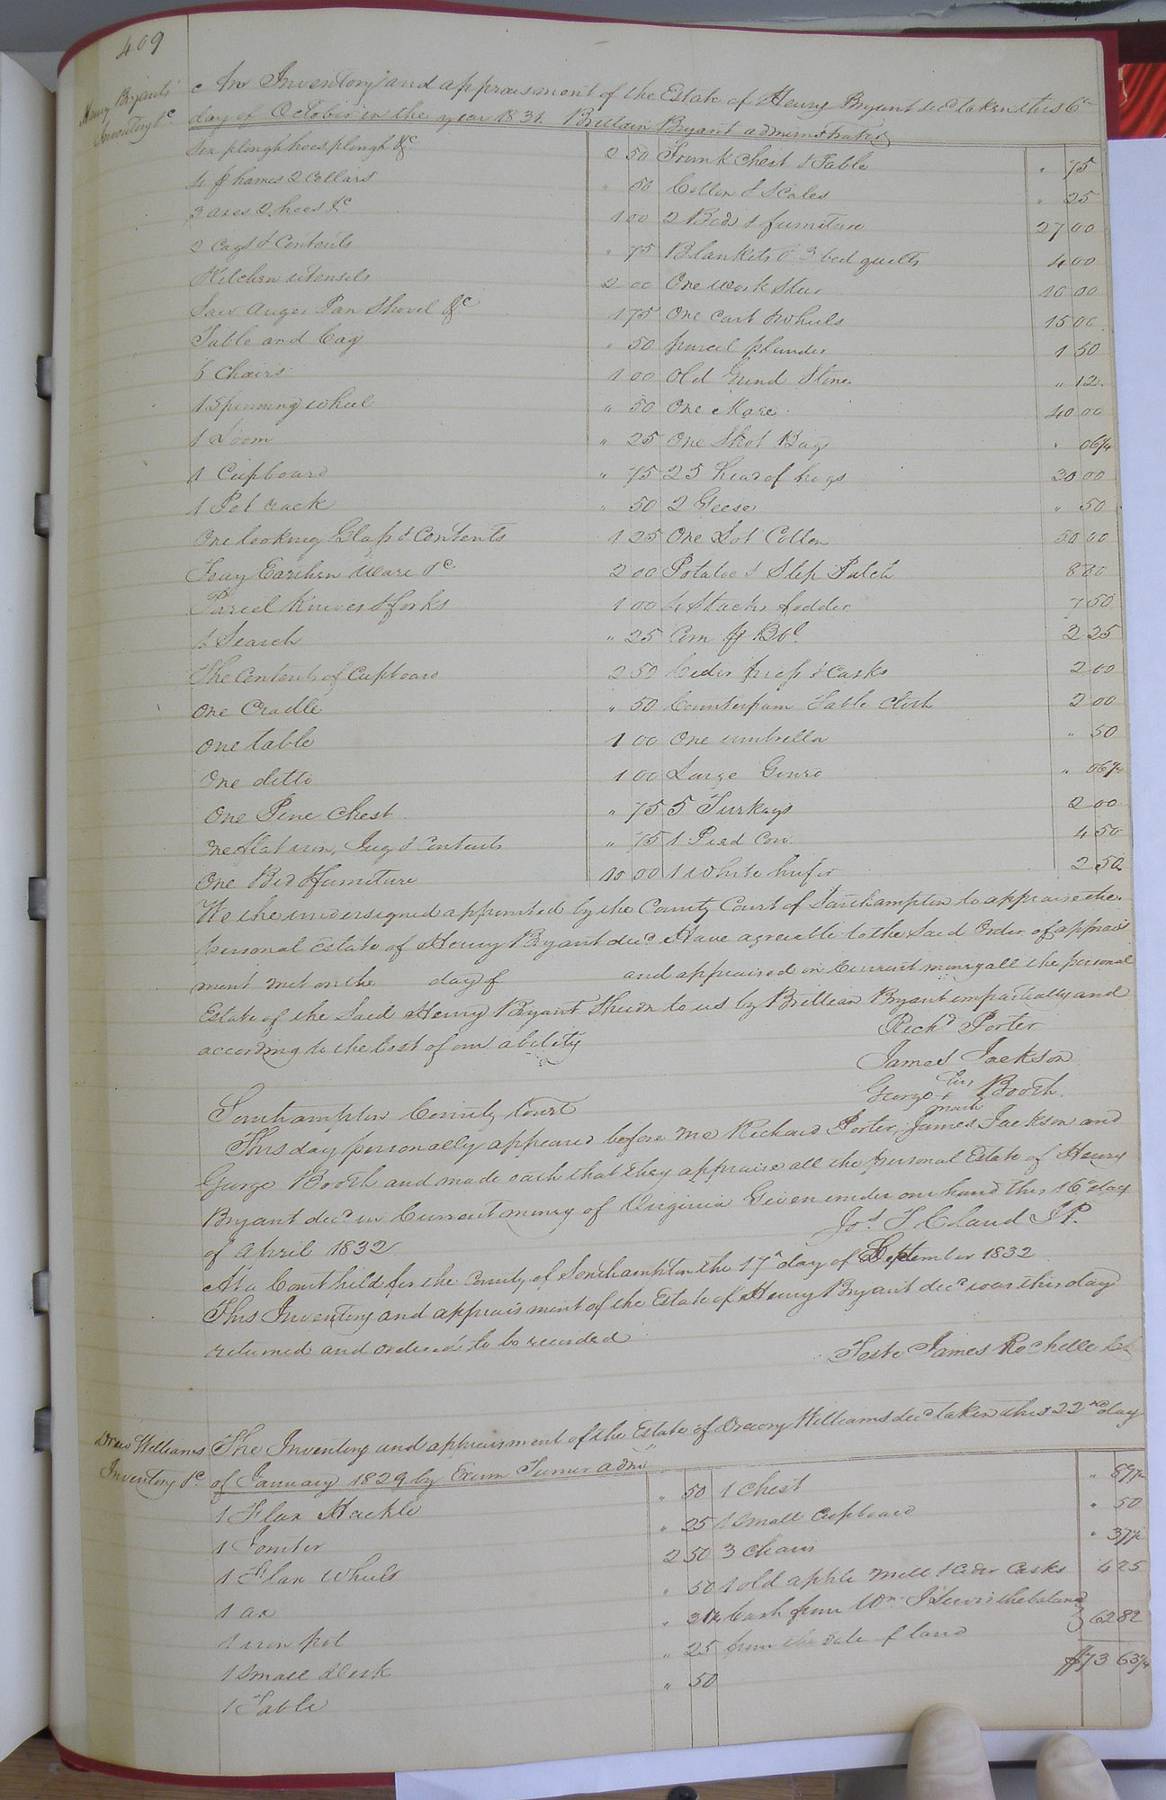 409
Henry Bryants
Inventory &c
An Inventory and appraisment of the Estate of Henry Bryant decd taken this 6th
day of October in the year 1831. Brittain Bryant administrator
Six plough hoes plough &c 2 50 Trunk Chest & Table " 75
4 hames 2 Collars " 50 Cotton & Scales " 25
3 axes 2 hoes &c 1 00 2 Beds & furniture 27 00
2 Cags & Contents " 75 Blankets & 3 bed quilts 4 00
Kitchen utensels 2 00 One work Steer 10 00
Saw Auger Pan Shovel &c 1 75 One Cart & wheels 15 00
Table and Cag " 50 parcel plunder 1 50
5 Chairs 1 00 Old Grind Stone " 12
1 Spinning wheel " 50 One Mare 40 00
1 Loom " 25 One Shot Bag " 06¼
1 Cupboard " 75 25 head of hogs 30 00
1 Pot rack " 50 2 Geese " 50
One looking Glass & Contents 1 25 One Lot Cotton 50 00
Tray Earthen Ware &c 2 00 Potatoe & Slip Patch 8 00
Parcel Knives & forks 1 00 4 Stacks fodder 7 50
1 Search " 25 Corn Bbl 2 25
The Contents of Cupboard 2 50 Cider press & Casks 2 00
One Cradle " 50 Counterpain Table Cloth 2 00
One table 1 00 One umbrella " 50
One ditto 1 00 Large Gourd " 06¼
One Pine Chest " 75 5 Turkeys 2 00
One flat iron, Jug & Contents " 75 1 Pied Cow 4 50
One Bed & furniture 10 00 1 white heifer 2 50
We the undersigned appointed by the County Court of Southampton to appraise the
personal Estate of Henry Bryant decd Have agreeable to the Said Order of apprais
ment met on the day of and appraised in Current money all the personal
Estate of the Said Henry Bryant Shewn to us by Brittian Bryant impartially and
according to the best of our ability
Richd Porter
James Jackson
his
George + Booth
mark
Southampton County Court
This day personally appeared before me Richard Porter, James Jackson and
George Booth and made oath that they appraise all the personal Estate of Henry
Bryant decd in Current money of Virginia Given under our hand this 16th day
of April 1832
Jos. T Claud J.P.
At a Court held for the County of Southampton the 17th day of September 1832
This Inventory and appraisment of the Estate of Henry Bryant decd was this day
returned and ordered to be recorded
Teste James Rochelle
Drew Williams
Inventory &c.
The Inventory and appraisment of the Estate of Drewry Williams decd taken this 22nd day
of January 1829 by Exum Turner admr
1 Flax Hackle " 50 1 Chest " 87½
1 Jointer " 25 1 Small Cupboard " 50
1 Flax Wheel 2 50 3 Chairs " 37½
1 ax " 50 1 old apple Mill & Cider Casks 4 25
1 iron pot " 31¼ Cash from Wm the balance
1 Small Desk " 25 from the Sale of land 62 82
1 Table " 50 $73 63¼